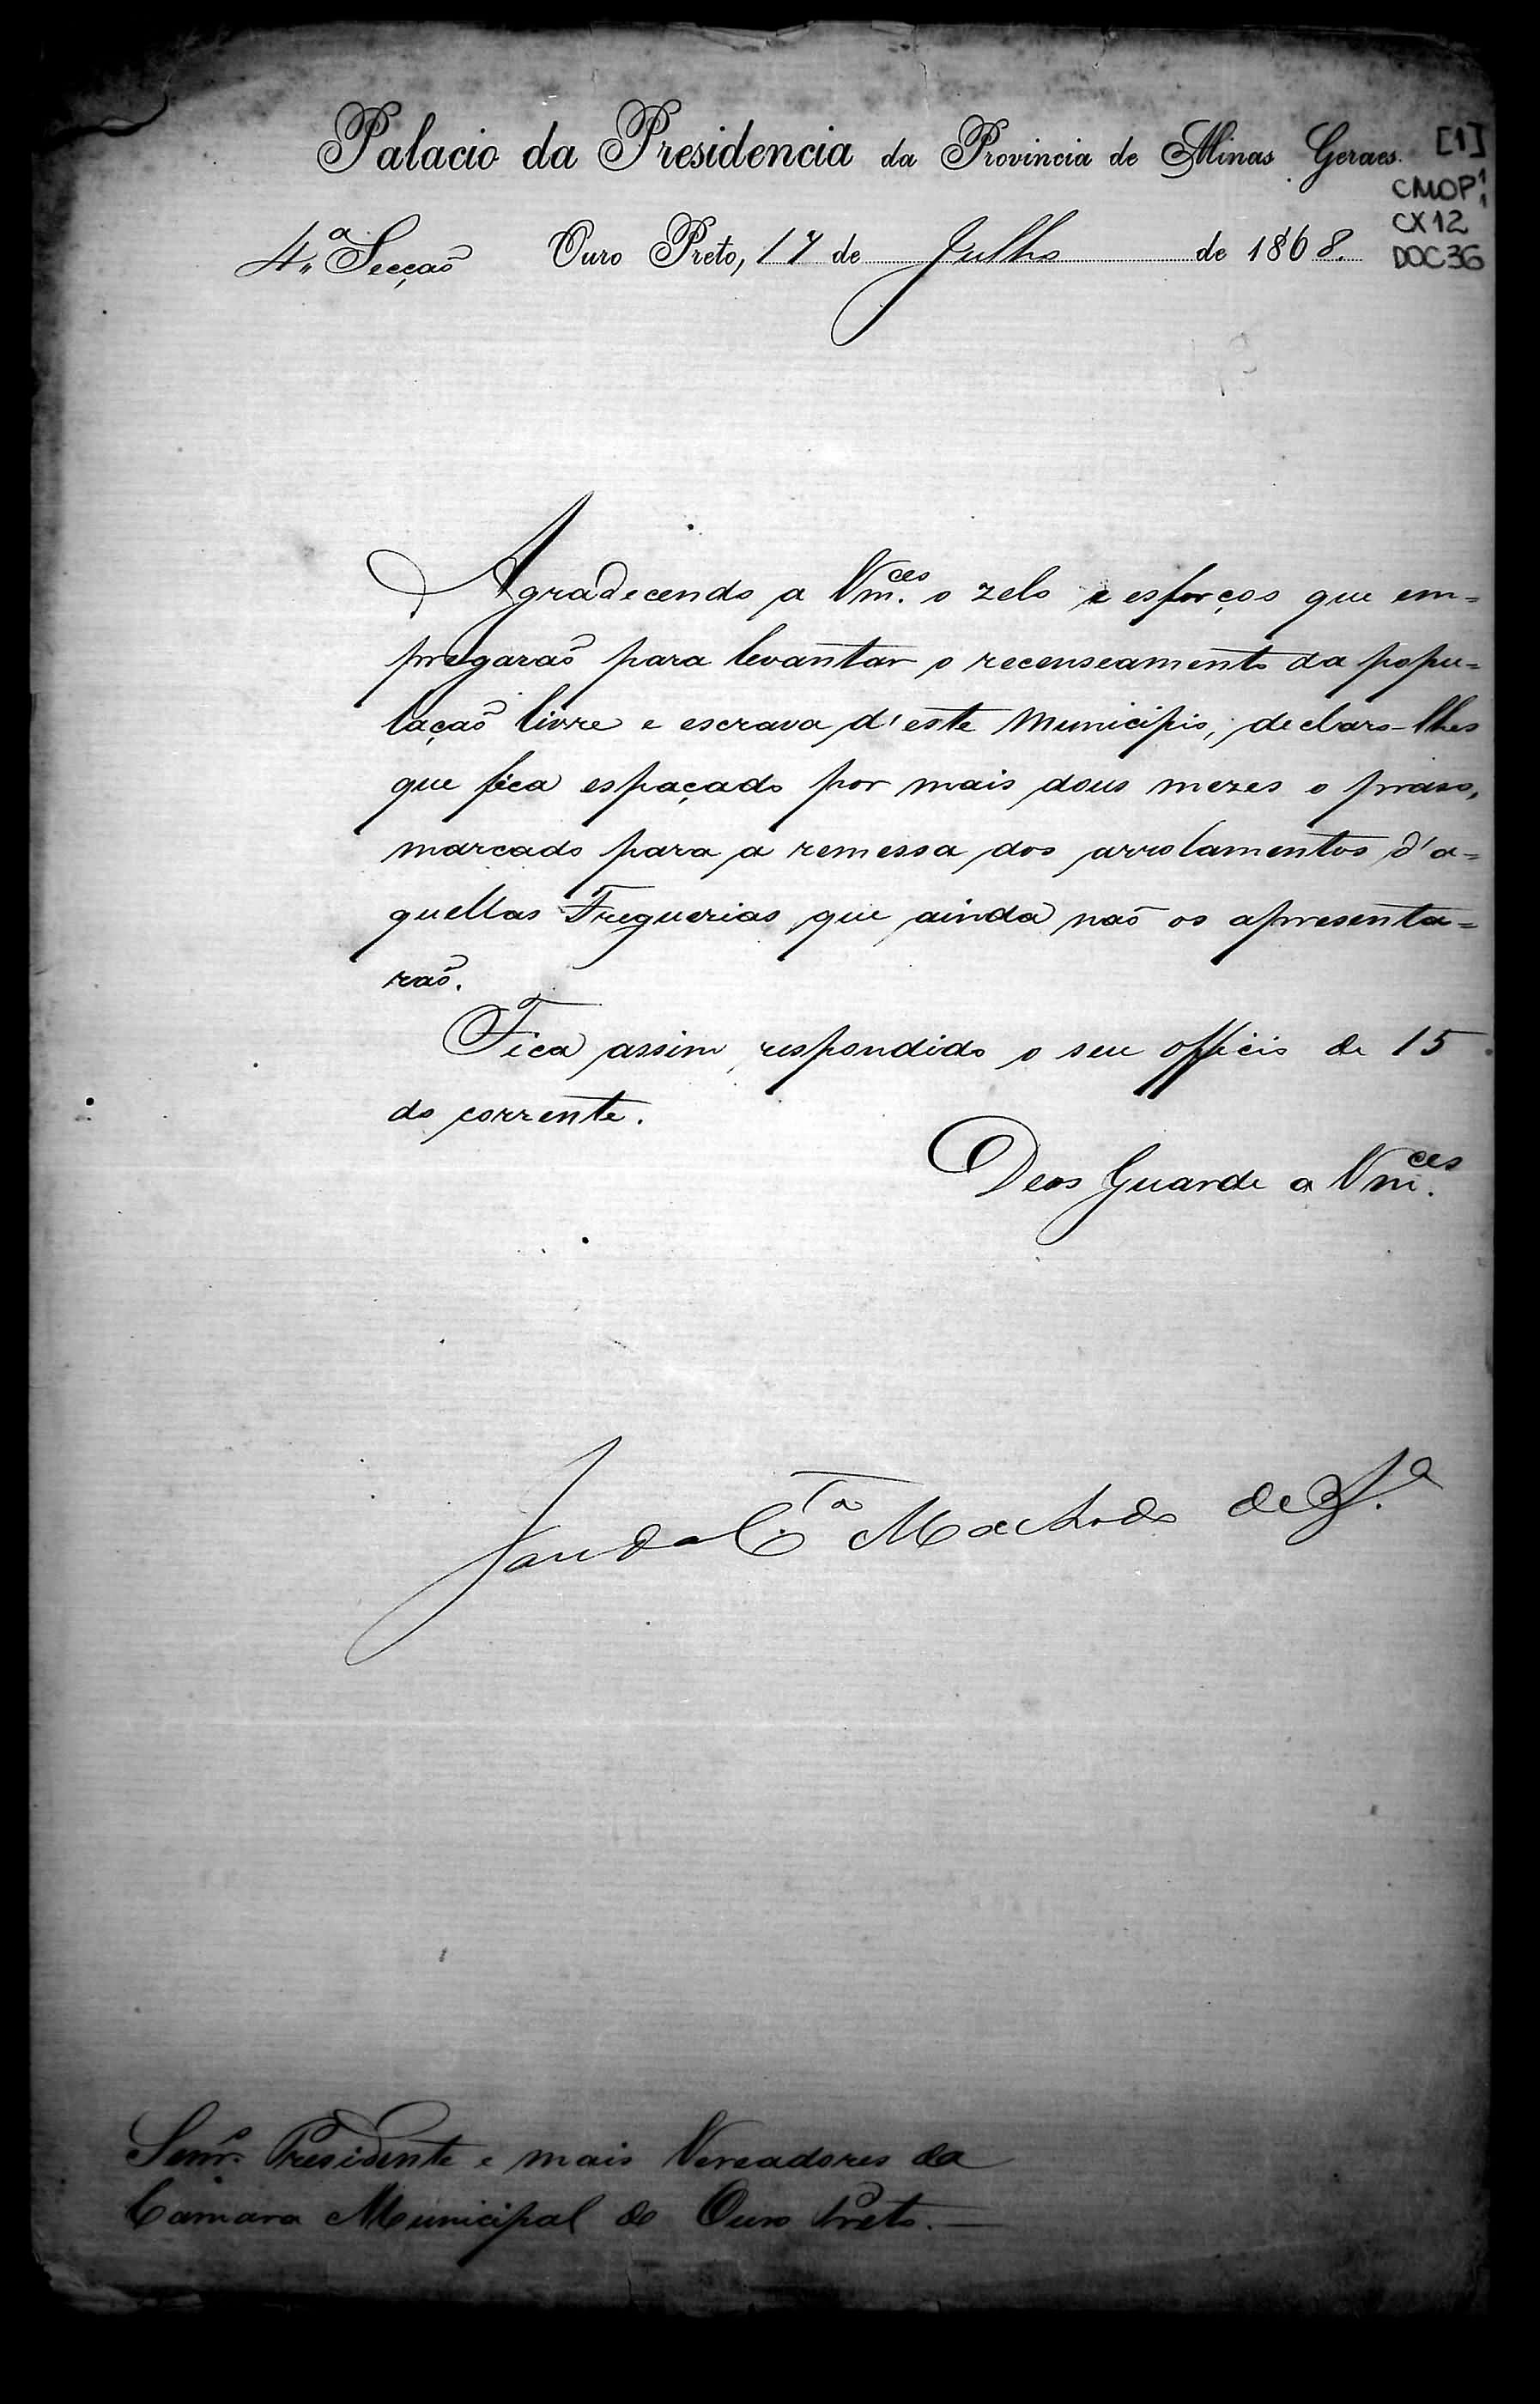 Palacio da Presidencia da Provincia de Minas Geraes.
[1]
CMOP 1/1
CX12
DOC 36
4.ª Secçaõ Ouro Preto, 17 de Julho de 1868.
Agradecendo a Vm.ces o zelo e esforços que em=
pregaraõ para levantar o recenseamento da popu=
laçaõ livre e escrava d'este Municipio, declaro-lhes
que fica espaçado por mais dous mezes o praso,
marcado para a remessa dos arrolamentos d'a=
quellas Freguezias que ainda naõ os apresenta=
raõ.
Fica assim respondido o seu officio de 15
do corrente.
Deos Guarde a Vm.ces
da C.ta Machado de S.ª
Senr.s Presidente e mais Vereadores da
Camara Municipal do Ouro Preto.—